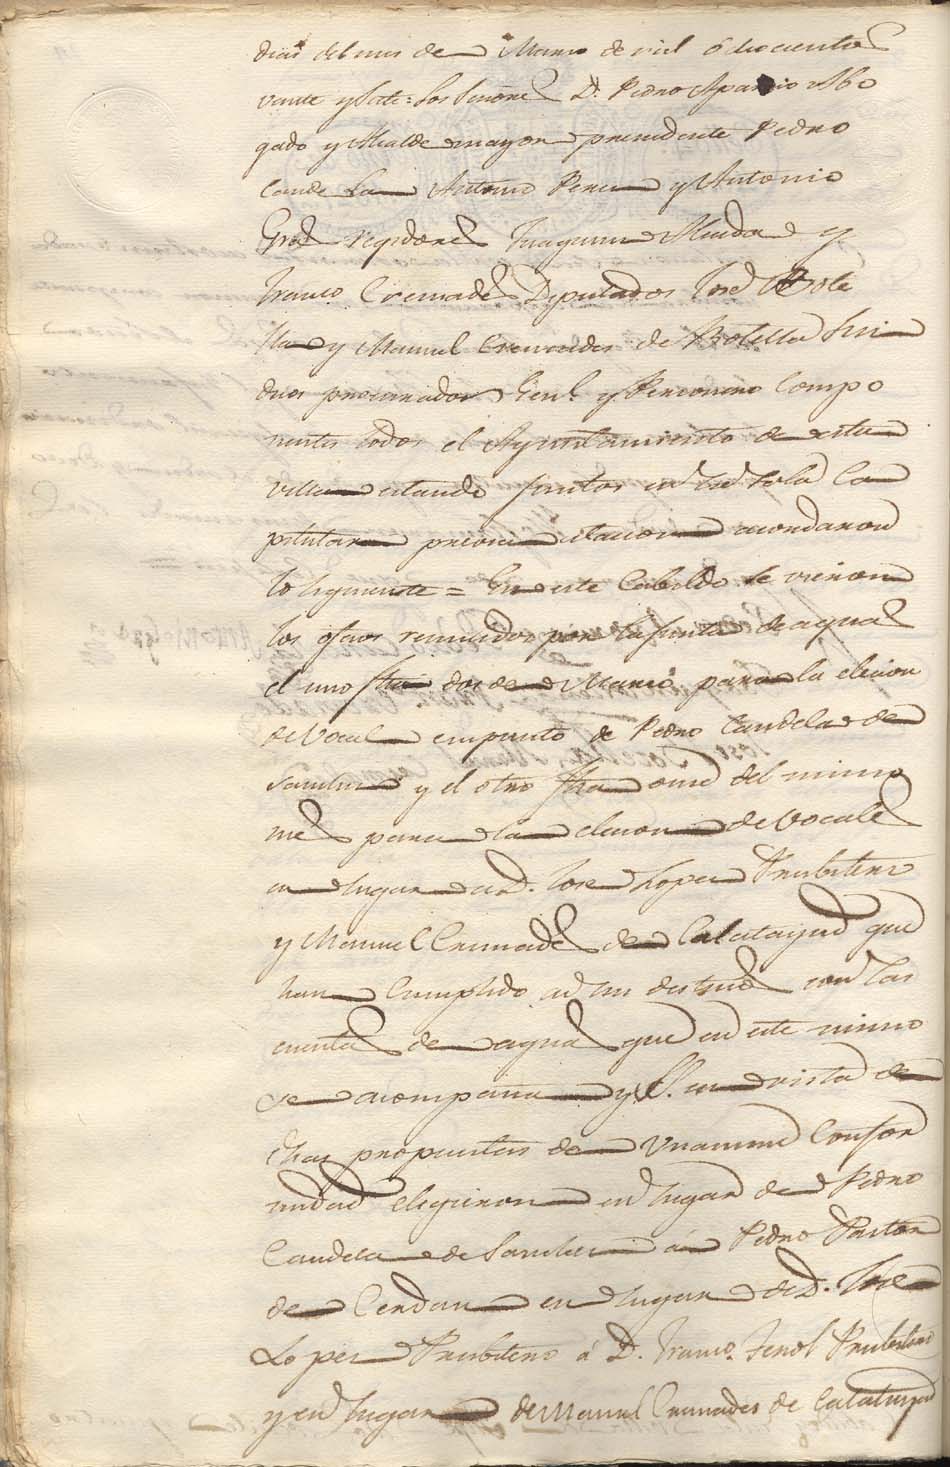 dias del mes de Marzo de mil ochocientos
veinte y siete: los Señores Dn. Pedro Aparicio Abo
gado y Alcalde mayor presidente Pedro
Antonio Perez y Antonio
regidores Joaquin y
Franco Cremades Diputados José Bote
lla y Manuel Cremades de Botella Sin
dicos procurador Genl. y Personero Compo
nentes todos el Ayuntamiento de esta
villa estando juntos en la Sala Ca
pitular precia citacion acordaron
lo siguiente = En este Cabildo se vieron
los oficios remitidos por la junta de aguas
el uno fha dos de Marzo para la elecion
de Vocal empunto de Pedro Candela de
Sanchez y el otro fha once del mismo
mes para la elecion de Vocales
en lugar de D. Jose Lopez Presbitero
y Manuel Cremades de Calatayud que
han Cumplido con las
cuentas de aguas que en este mismo
se acompaña y SS. en vista de
dhas propuestas de Unanime Confor
midad eligieron en lugar de Pedro
Candela de Sanchez á Pedro Pastor
de Cerdan en lugar de D. Jose
Lopez Presbitero á D. Franco. Ferol Presbitero
y en lugar de Manuel Cremades de Calatayud